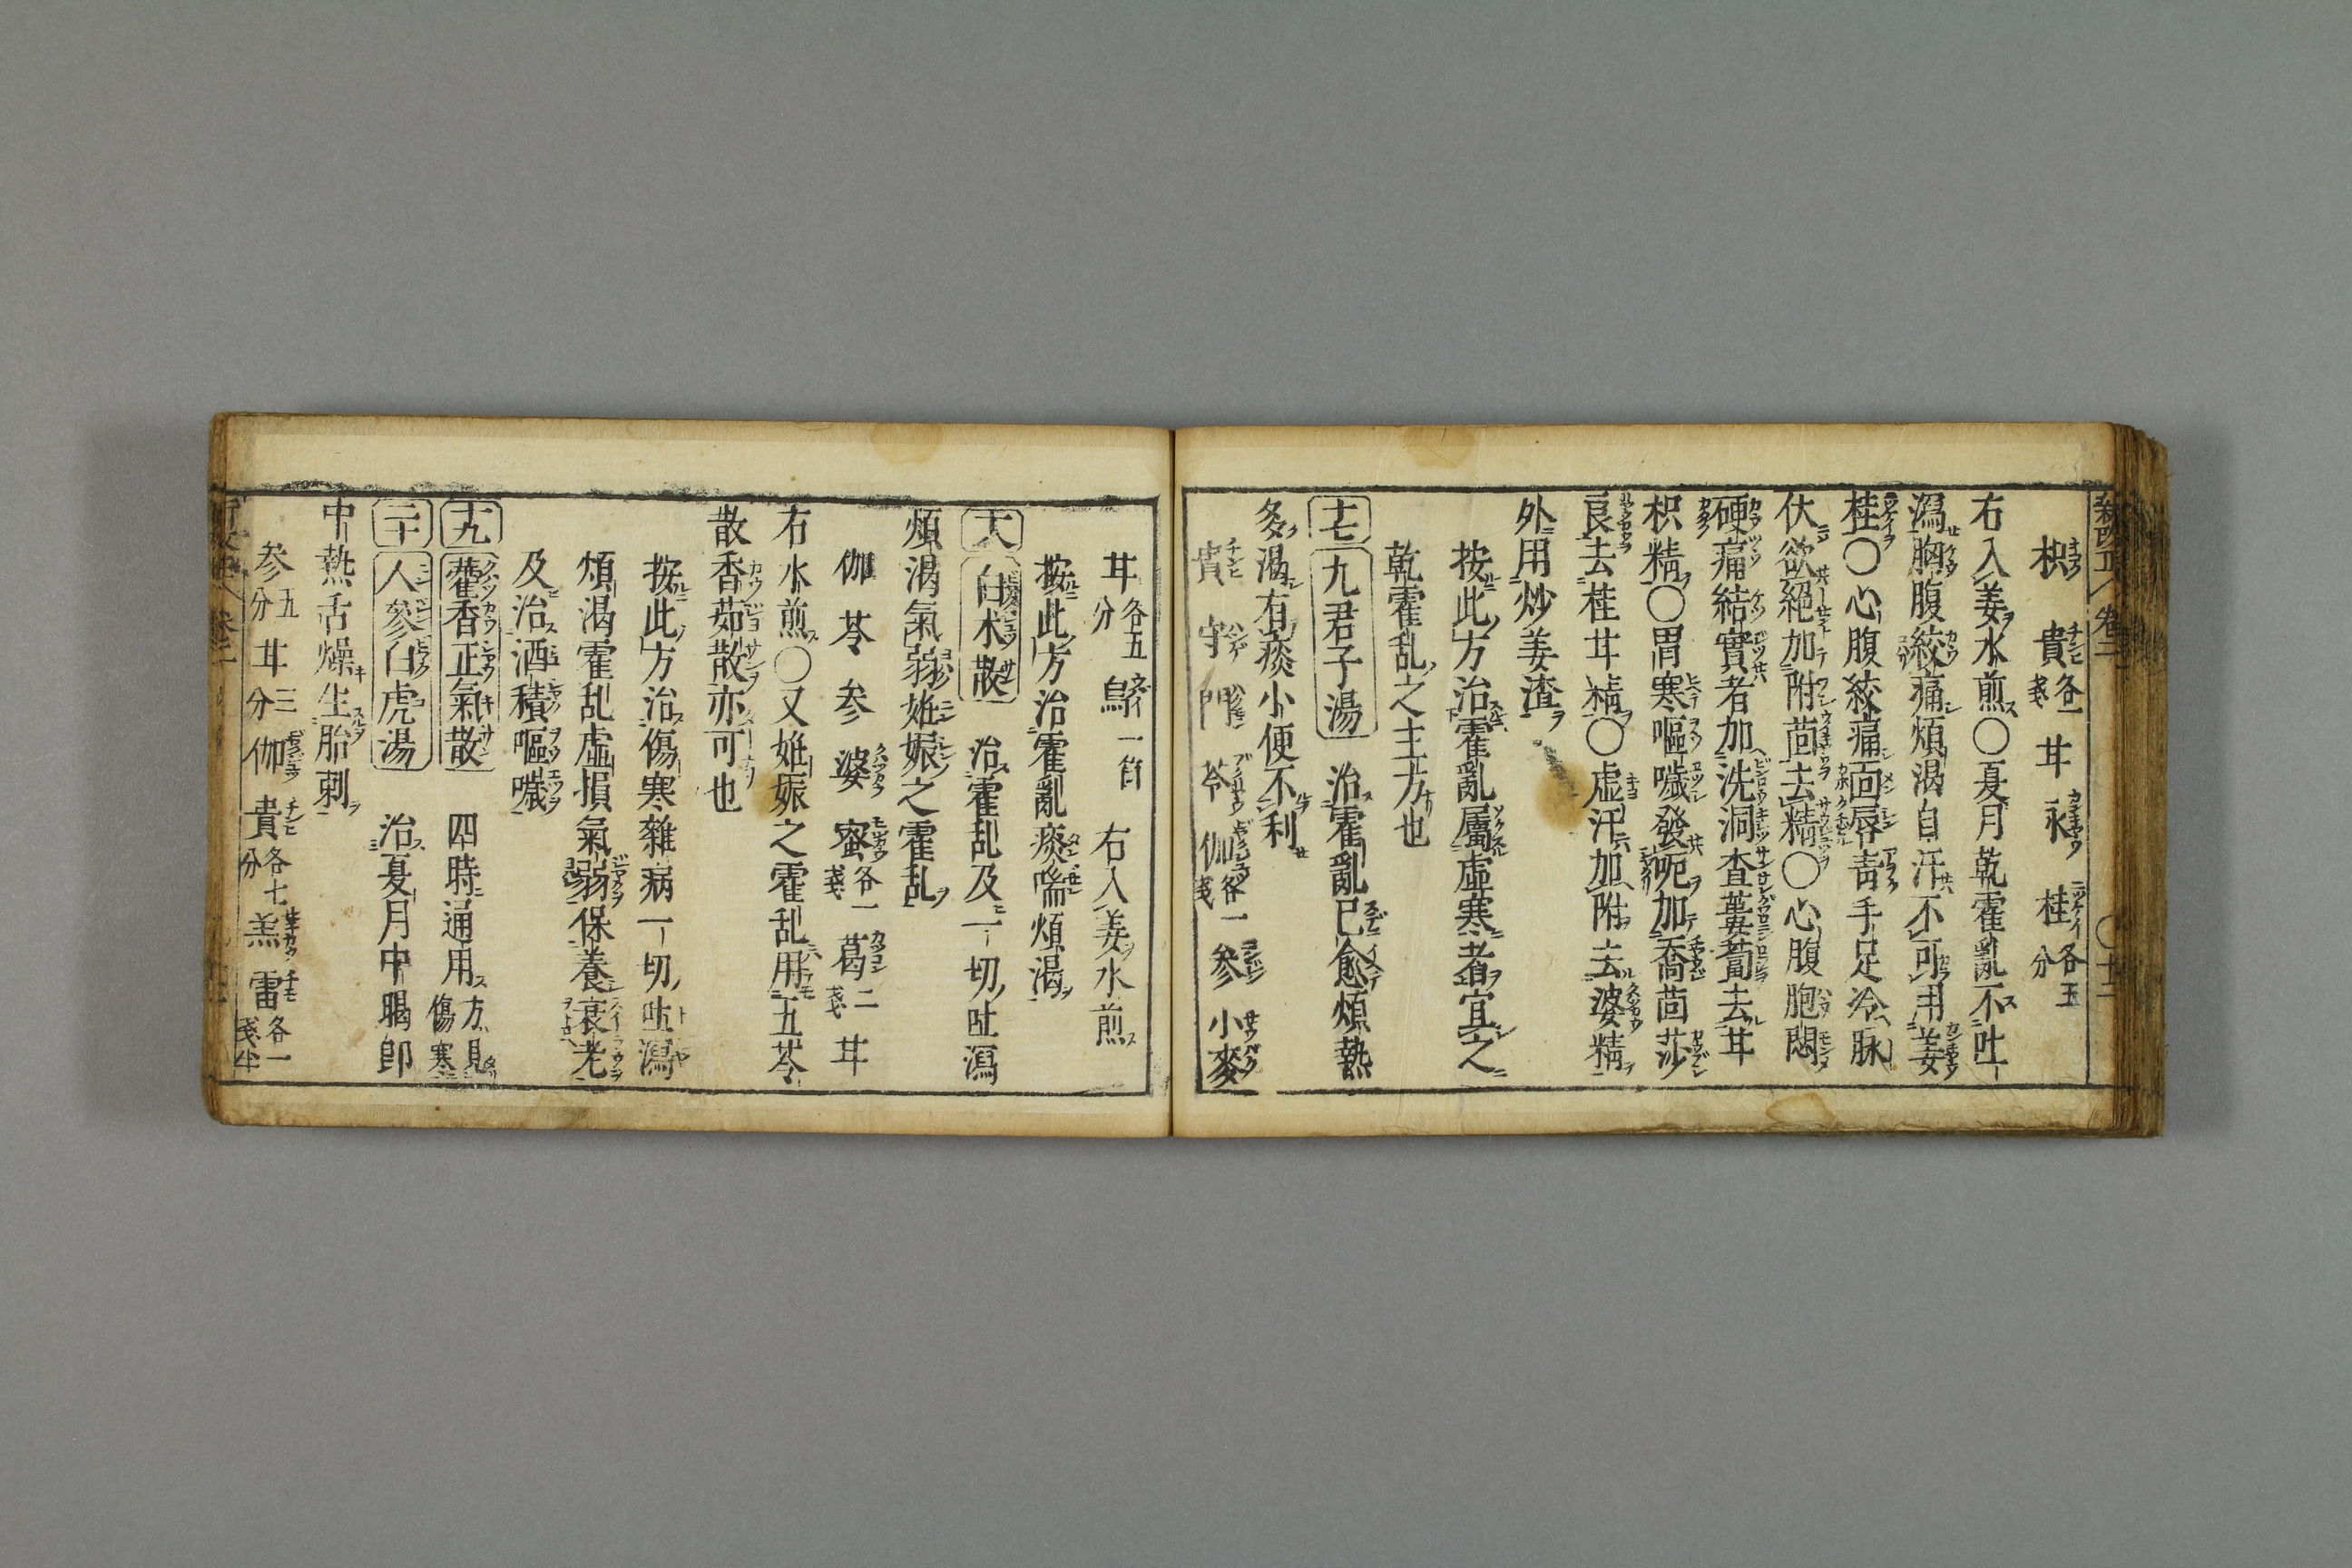 枳 貴各一戔 甘 永 桂各五分
右入姜水煎〇夏月乾霍亂不吐
瀉胸腹絞痛煩渴自汗不可用姜
桂〇心腹絞痛面唇青手足冷脉
伏欲絕加附茴去精〇心腹胞悶
硬痛結實者加洗洞查蔞蔔去甘
枳精〇胃寒嘔噦發呃加喬茴莎
良去桂甘精〇虛汗加附去婆精
外用炒姜渣
按此方治霍亂屬虛寒者宜之
乾霍乱之主方也
十七 九君子湯 治霍亂已愈煩熱
多渴有痰小便不利
貴 守 門 苓 伽各一戔 參 小麥
甘各五分 烏一箇 右入姜水煎
按此方治霍亂痰喘煩渴
十八 白朮散 治霍乱及一切吐瀉
煩渴氣弱姙娠之霍乱
伽 苓 参 婆 蜜各一戔 葛二戔 甘
右水煎〇又姙娠之霍乱用五苓
散香茹散亦可也
按此方治傷寒雜病一切吐瀉
煩渴霍乱虛損氣弱保養衰老
及治酒積嘔噦
十九 藿香正氣散 四時通用 方見傷寒
二十 人參白虎湯 治夏月中暍即
中熱舌燥生胎刺
参五分 甘三分 伽 貴各七分 羔 雷各一戔半